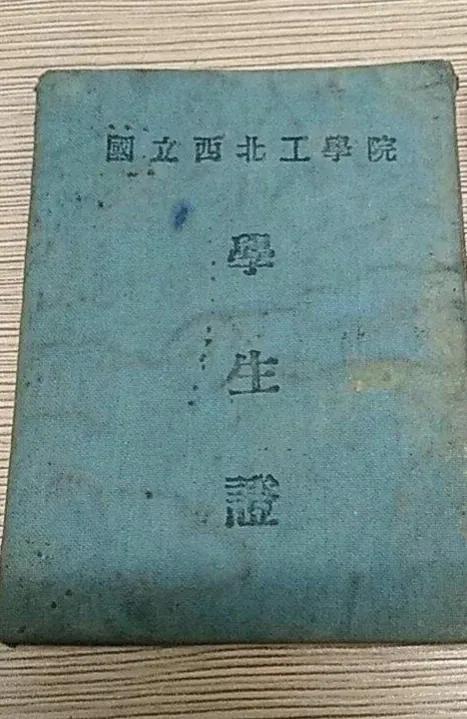 國立西北工學院
學生證